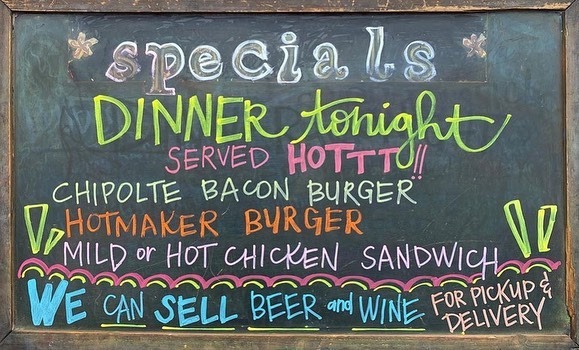 specials
DINNER tonight
SERVED HOTTT!!
CHIPOLTE BACON BURGER
HOTMAKER BURGER
MILD or HOT CHICKEN SANDWICH
WE CAN SELL BEER and WINE FOR PICKUP & DELIVERY